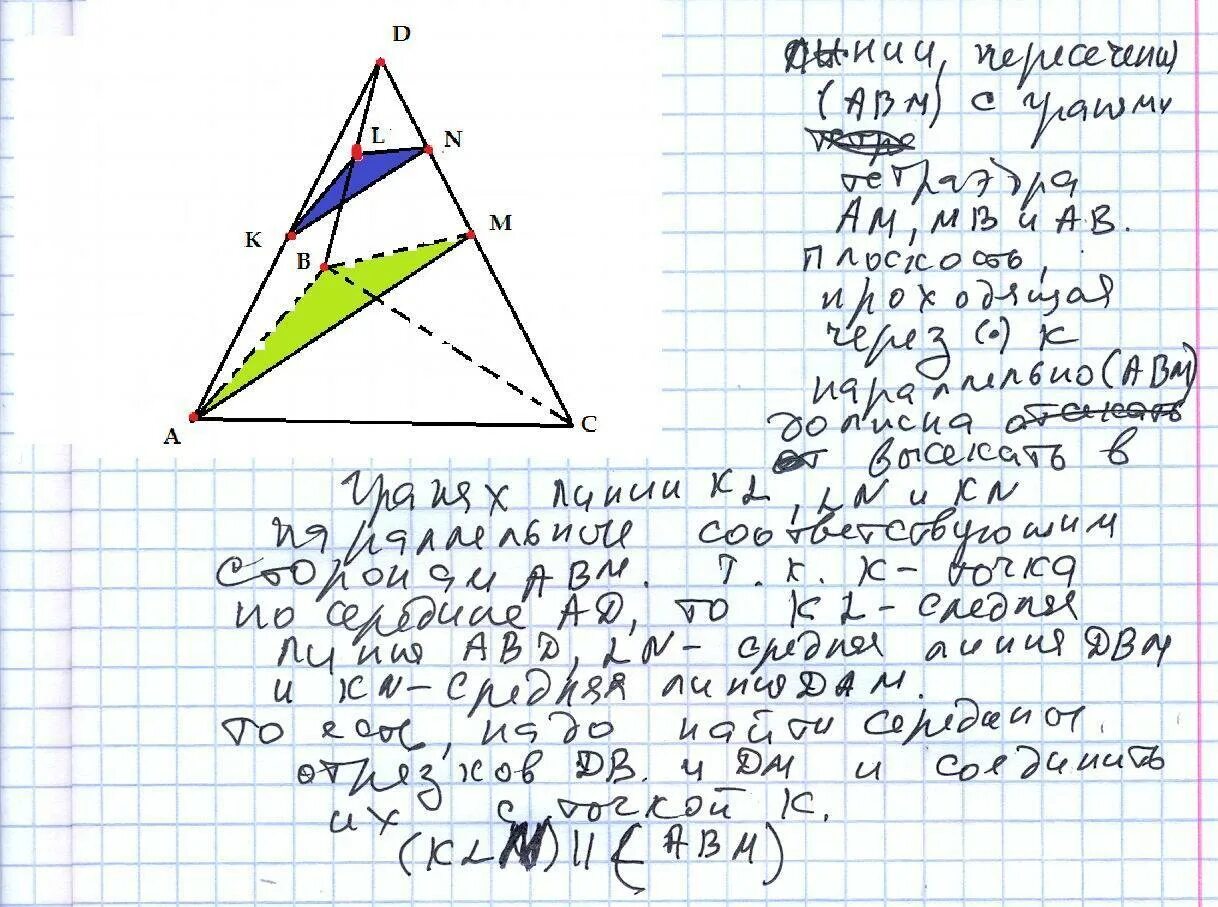 D
L
N
K
M
B
A
C
Линии пересечения
(ABM) с гранями
тетраэдра
AM, MB и AB.
плоскость,
проходящая
через (•) K
параллельно (ABM)
должна
высекать в
гранях линии KL, LN и KN
параллельные соответствующим
сторонам ABM. Т.к. K - точка
по середине AD, то KL - средняя
линия ABD, LN - средняя линия DBM
и KN - средняя линия DAM.
то есть, надо найти середины
отрезков DB и DM и соединить
их с точкой K.
(KLN) || (ABM)